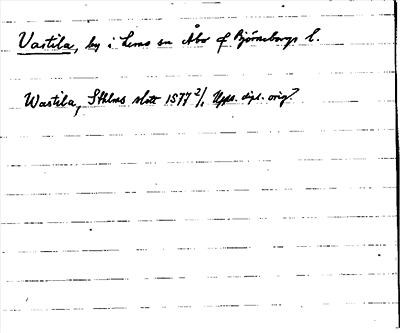 Vastila, by i Lemo sn Åbo o Björneborgs l.
Wastila, Sthlms slott 1577 2/1 Upps. dipl. orig.